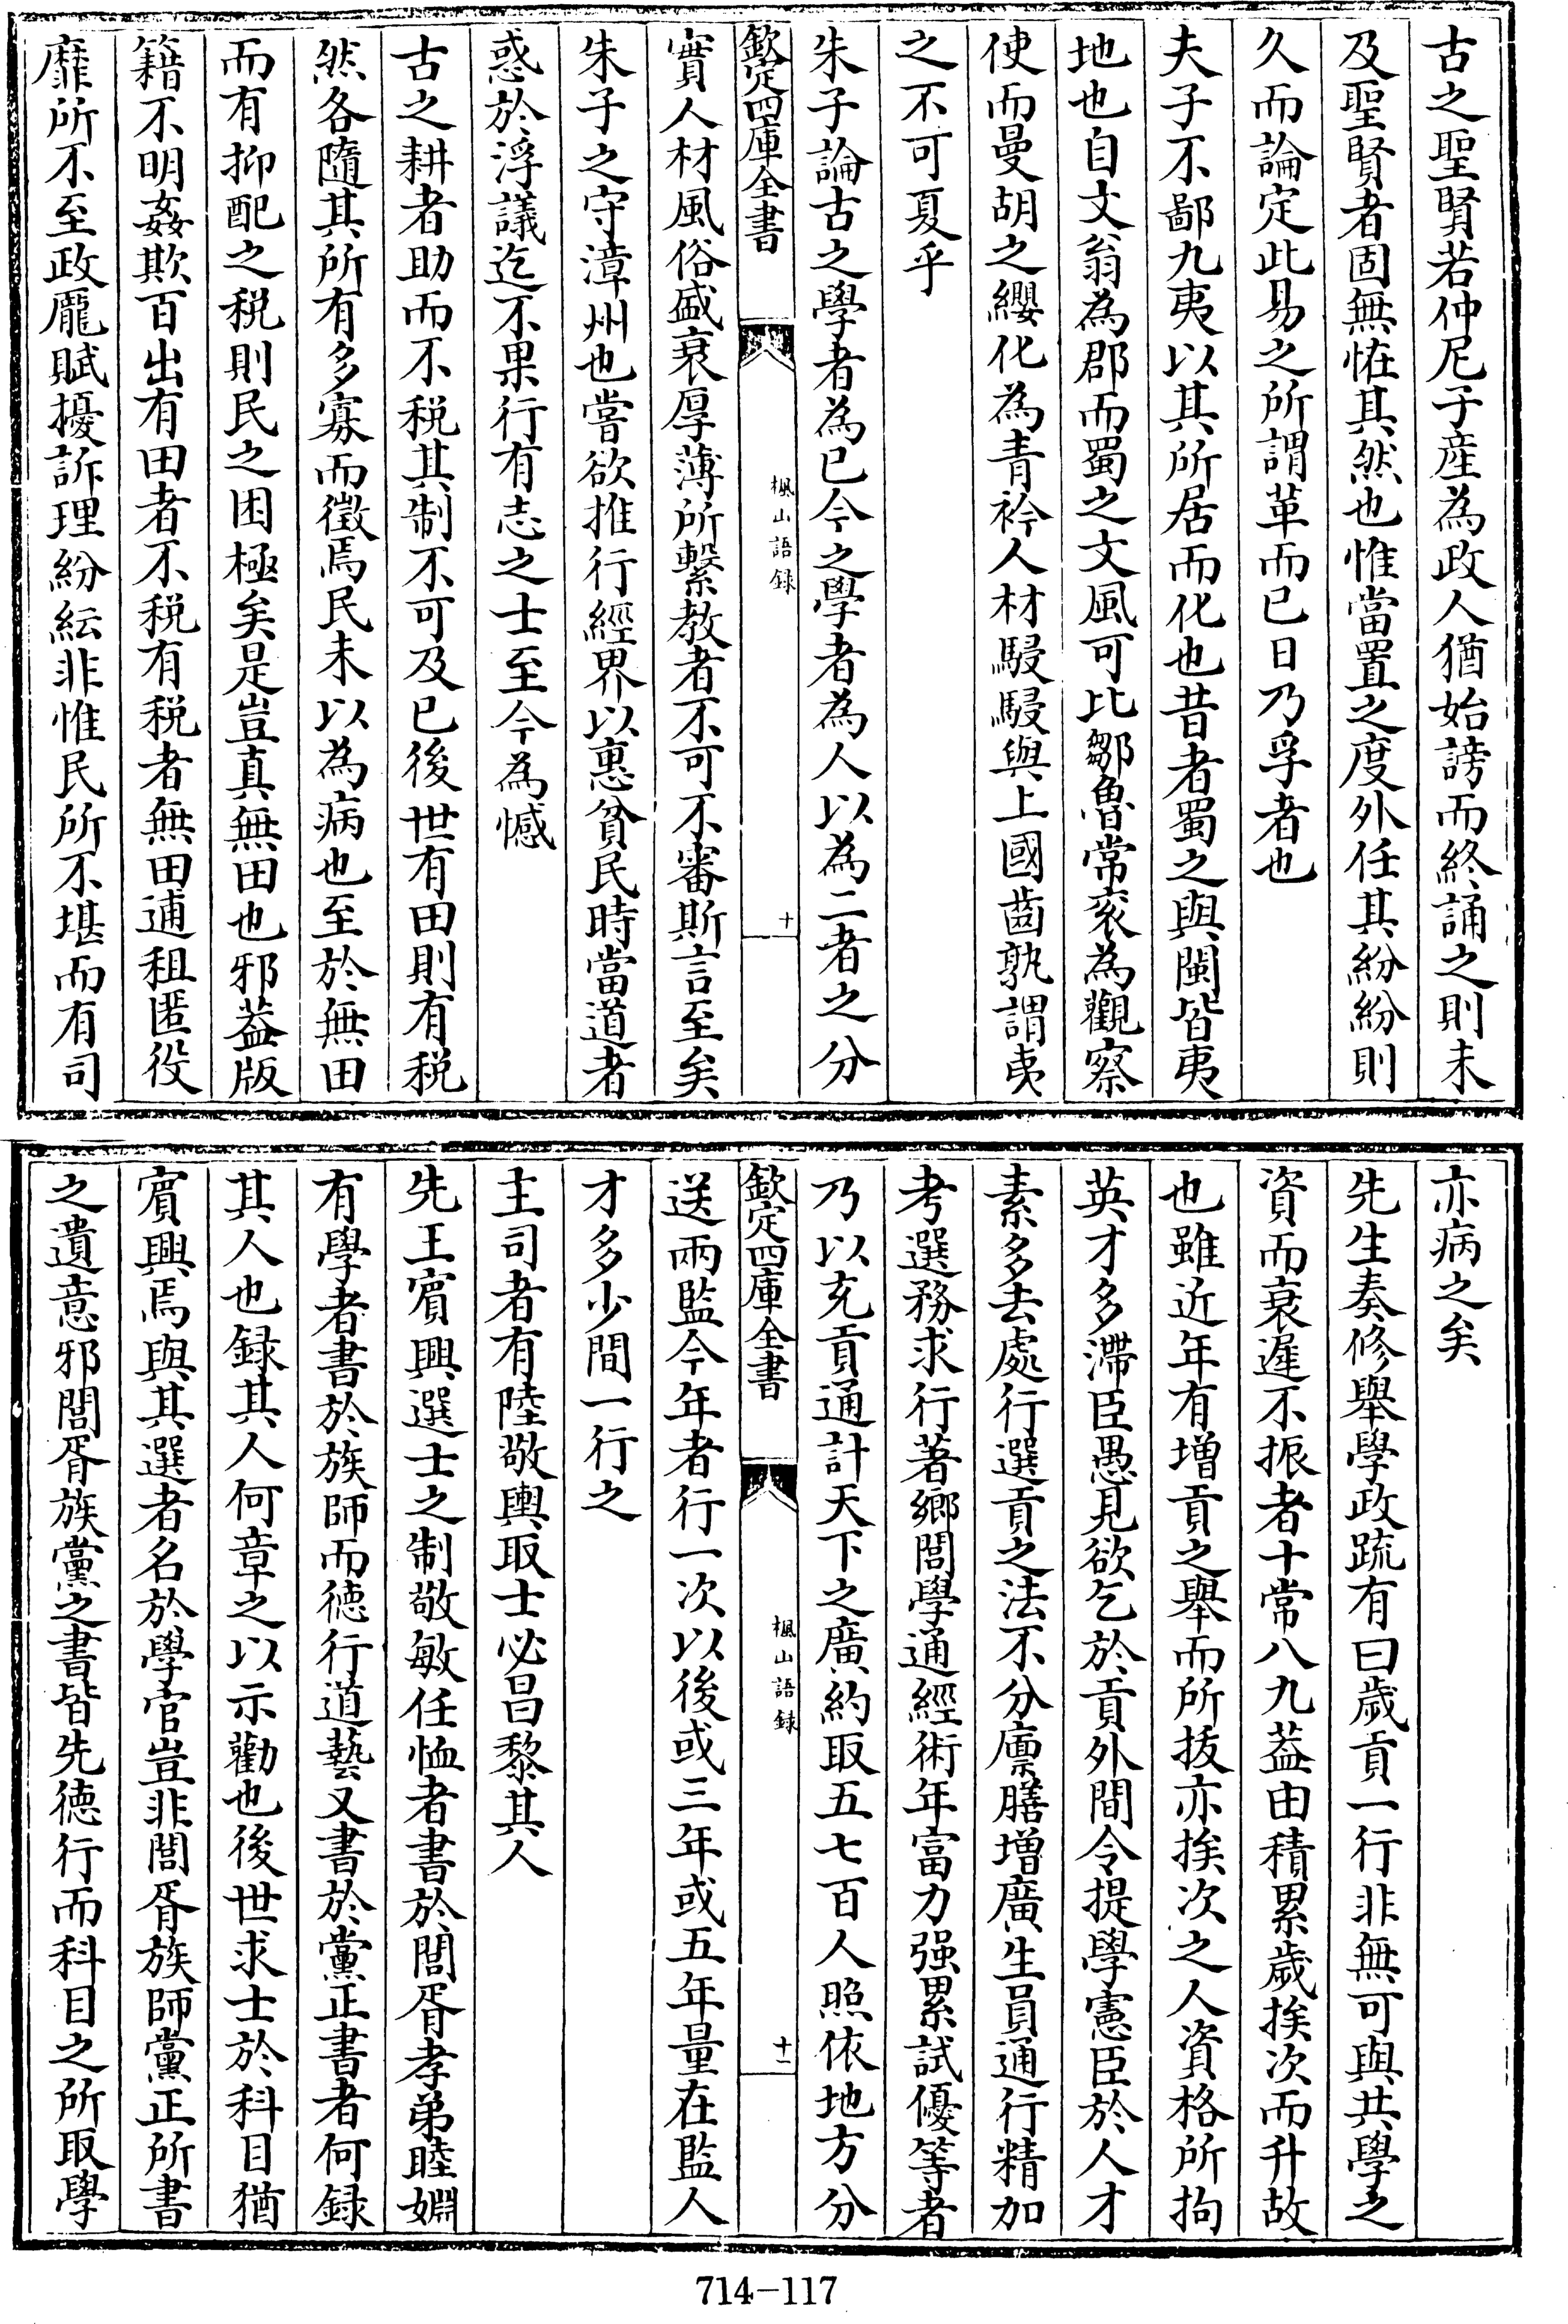 古之聖賢若仲尼子産為政人猶始謗而終誦之則未
及聖賢者固無恠其然也惟當置之度外任其紛紛則
久而論定此易之所謂革而已日乃孚者也
夫子不鄙九夷以其所居而化也昔者蜀之與閩皆夷
地也自文翁為郡而蜀之文風可比鄒魯常衮為觀察
使而曼胡之纓化為青衿人材駸駸與上國齒孰謂夷
之不可夏乎
朱子論古之學者為已今之學者為人以為二者之分
欽定四庫全書
楓山語録
十
實人材風俗盛衰厚薄所繫教者不可不審斯言至矣
朱子之守漳州也嘗欲推行經界以惠貧民時當道者
惑於浮議迄不果行有志之士至今為憾
古之耕者助而不税其制不可及已後世有田則有税
然各隨其所有多寡而徵焉民未以為病也至於無田
而有抑配之税則民之困極矣是豈真無田也邪葢版
籍不明姦欺百出有田者不税有税者無田逋租匿役
靡所不至政龎賦擾訴理紛紜非惟民所不堪而有司
亦病之矣
先生奏修舉學政疏有曰歲貢一行非無可與共學之
資而衰遲不振者十常八九葢由積累歲挨次而升故
也雖近年有增貢之舉而所拔亦挨次之人資格所拘
英才多滯臣愚見欲乞於貢外間令提學憲臣於人才
素多去處行選貢之法不分廪膳增廣生員通行精加
考選務求行著鄉閭學通經術年富力强累試優等者
乃以充貢通計天下之廣約取五七百人照依地方分
欽定四庫全書
楓山語録
十一
送兩監今年者行一次以後或三年或五年量在監人
才多少間一行之
主司者有陸敬輿取士必昌黎其人
先王賓興選士之制敬敏任恤者書於閭胥孝弟睦婣
有學者書於族師而德行道藝又書於黨正書者何録
其人也録其人何章之以示勸也後世求士於科目猶
賓興焉與其選者名於學官豈非閭胥族師黨正所書
之遺意邪閭胥族黨之書皆先德行而科目之所取學
714-117